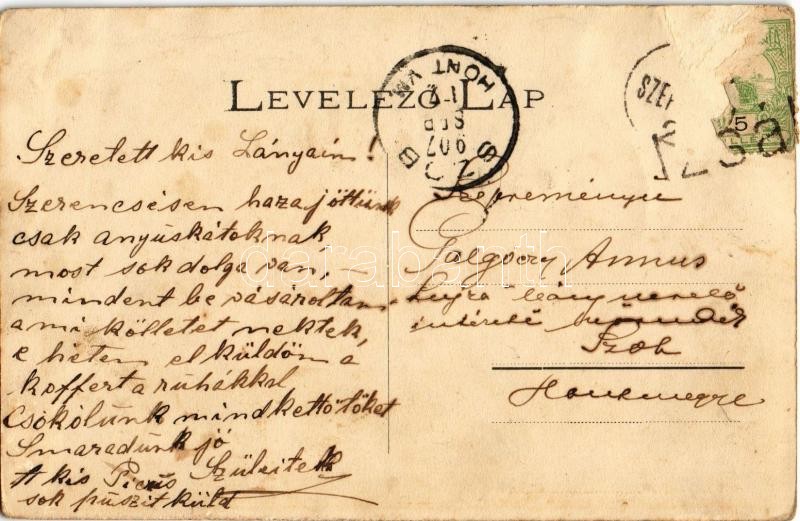 LEVELEZŐ-LAP
SZOB
907
SEP
12
HONT VM
SZE
5
Szeretett kis Lányaim!
Szerencsésen haza jöttünk
csak anyuskátoknak
most sok dolga van, —
mindent be vásároltam
ami kölletet nektek,
e héten elküldöm a
koffert a ruhákkal
Csókolunk mindkettőtöket
Smaradunk jó
Szüleitek
A kis Picus
sok puszit küld
Galgóczy Annus
leány nevelő
Szob
Hontmegye
darabanth